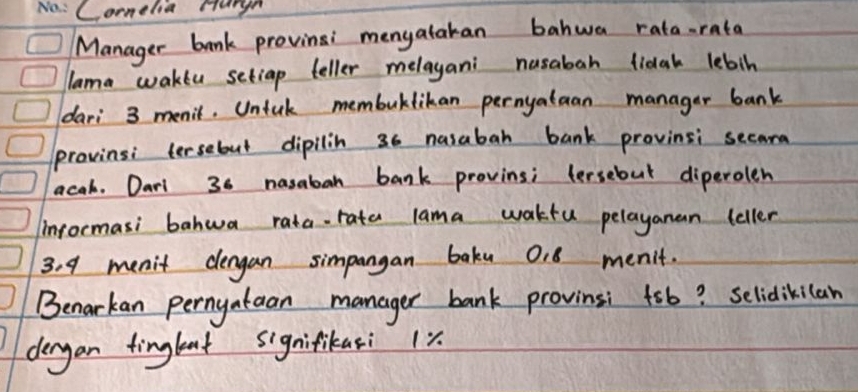 No.: Cornelia Huryn
Manager bank provinsi menyatakan bahwa rata-rata
lama waktu setiap teller melayani nasabah tidak lebih
dari 3 menit. Untuk membuktikan pernyataan manager bank
provinsi tersebut dipilih 36 nasabah bank provinsi secara
acak. Dari 36 nasabah bank provinsi tersebut diperoleh
informasi bahwa rata-rata lama waktu pelayanan teller
3,4 menit dengan simpangan baku 0,8 menit.
Benarkan pernyataan manager bank provinsi tsb? Selidikilah
dengan tingkat signifikasi 1%